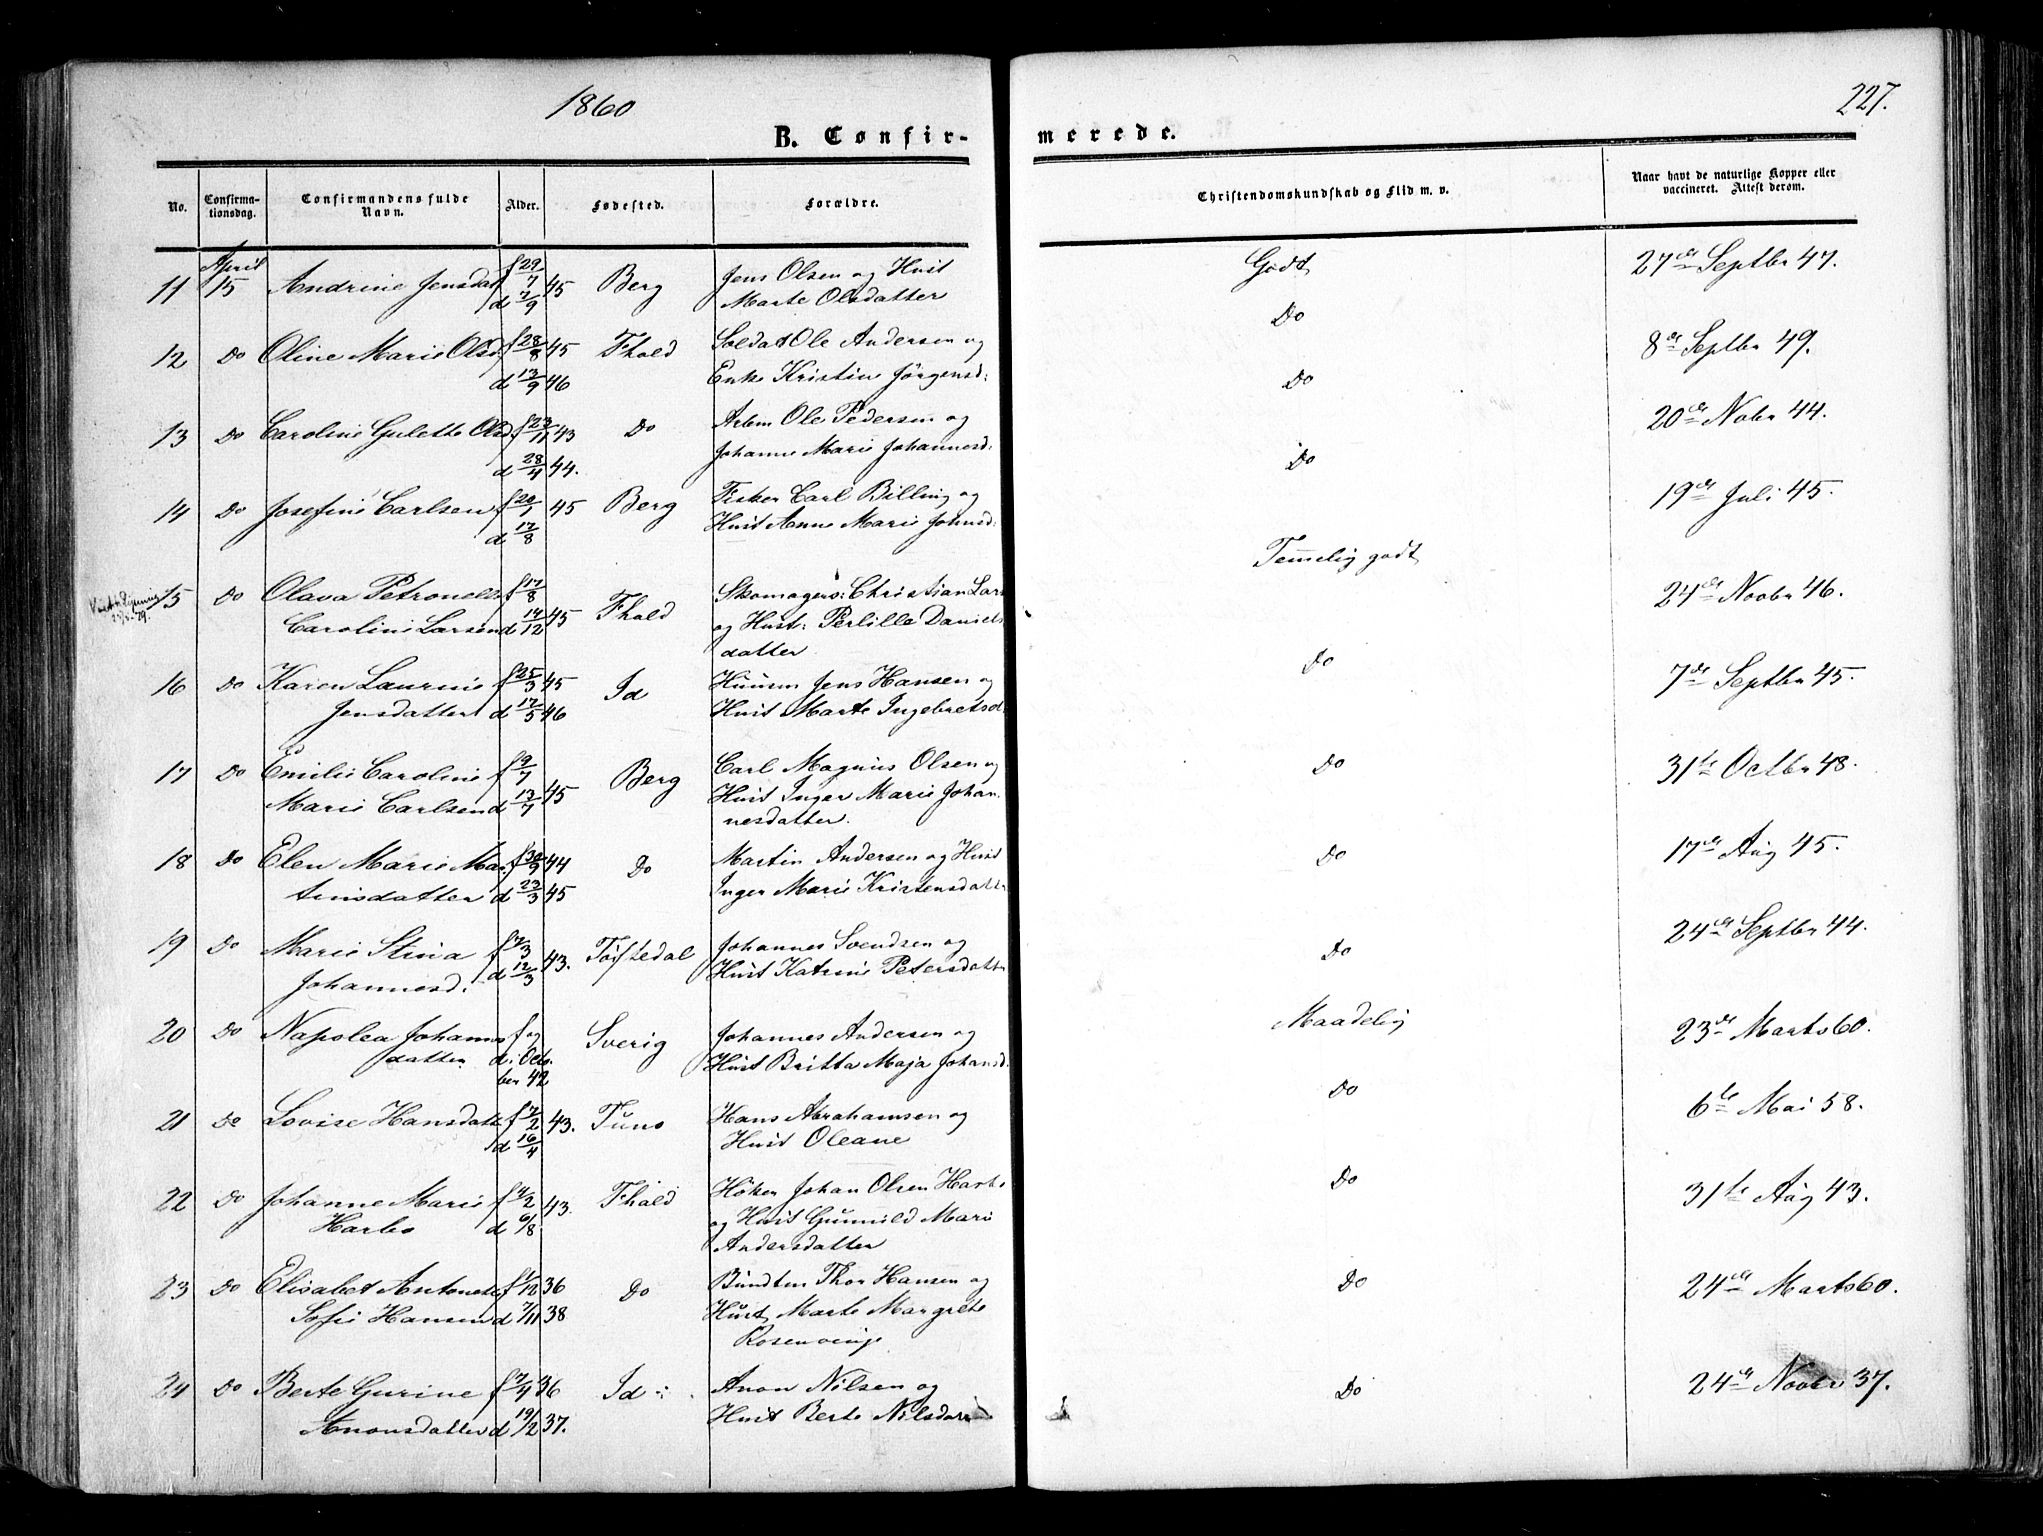 1860
227.
B. Confirmerede.
No.
Confirmationsdag.
Confirmandens fulde Navn.
Alder.
Fødested.
Forældre.
Christendomskundskab og Flid m. v.
Naar havt de naturlige Kopper eller vaccineret. Attest derom.
11 April 15 Andrine Jensdat f 29/7 45 Berg Jens Olsen og Hust Godt 27de Septbr 47.
d 7/9 Marte Olsdatter
12 Do Oline Marie Olsd. f 28/8 45 Fhald Soldat Ole Andersen og Do 8de Septbr 49.
d 13/9 46 Enke Kristin Jörgensd:
13 Do Caroline Gulette Olsd f 23/11 43 Do Arbm Ole Pedersen og Do 20de Nobr 44.
d 28/4 44. Johanne Marie Johannesd:
14 Do Josefine Carlsen f 20/1 45 Berg Fisker Carl Billing og Do 19de Juli 45.
d 17/8 Hust Anne Marie Johnsd:
15 Do Olava Petronelle f 17/8 45 Fhald Skomagers: Christian Lars Temmelig godt 24de Novbr 46.
Caroline Larsen d 14/12 og Hust: Perlille Daniels
datter
16 Do Karen Laurine f 25/3 45 Id Huusm Jens Hansen og Do 7de Septbr 45.
Jensdatter d 17/5 46 Hust Marte Ingebretsd:
17 Do Emilie Caroline f 9/7 45 Berg Carl Magnus Olsen og Do 31te Octbr 48.
Marie Carlsen d 13/7 Hust Inger Marie Johan
nesdatter.
18 Do Elen Marie Mar f 30/9 44 Do Martin Andersen og Hust Do 17de Aug 45.
tinsdatter d 23/3 45 Inger Marie Kristensdatt
19 Do Marie Stina f 7/3 43. Töftedal Johannes Svendsen og Do 24de Septbr 44.
Johannesd. d 12/3 Hust Katrine Petersdatt
20 Do Napolea Johannes f og Sverig Johannes Andersen og Maadelig 23de Marts 60.
datter. d: Octo Hust Britta Maja Johansd.
ber 42
21 Do Lovise Hansdatt f 7/2 43. Tune Hans Abrahamsen og Do 6te Mai 58.
d 16/4 Hust Oleane
22 Do Johanne Marie f 4/2 43. Fhald Höker Johan Olsen Harbo Do 31te Aug 43.
Harbo d 6/8 og Hust Gunnild Marie
Andersdatter
23 Do Elisabet Antonette f 1/12 36 Do Bundtm Thor Hansen og Do 24de Marts 60.
Sofie Hansen d 7/11 38 Hust Marte Margrete
Rosenvinge
24 Do Berte Gurine f 7/4 36 Id: Anon Nilsen og Do 24de Novbr 37.
Anonsdatter d 19/2 37. Hust Berte Nilsdatt